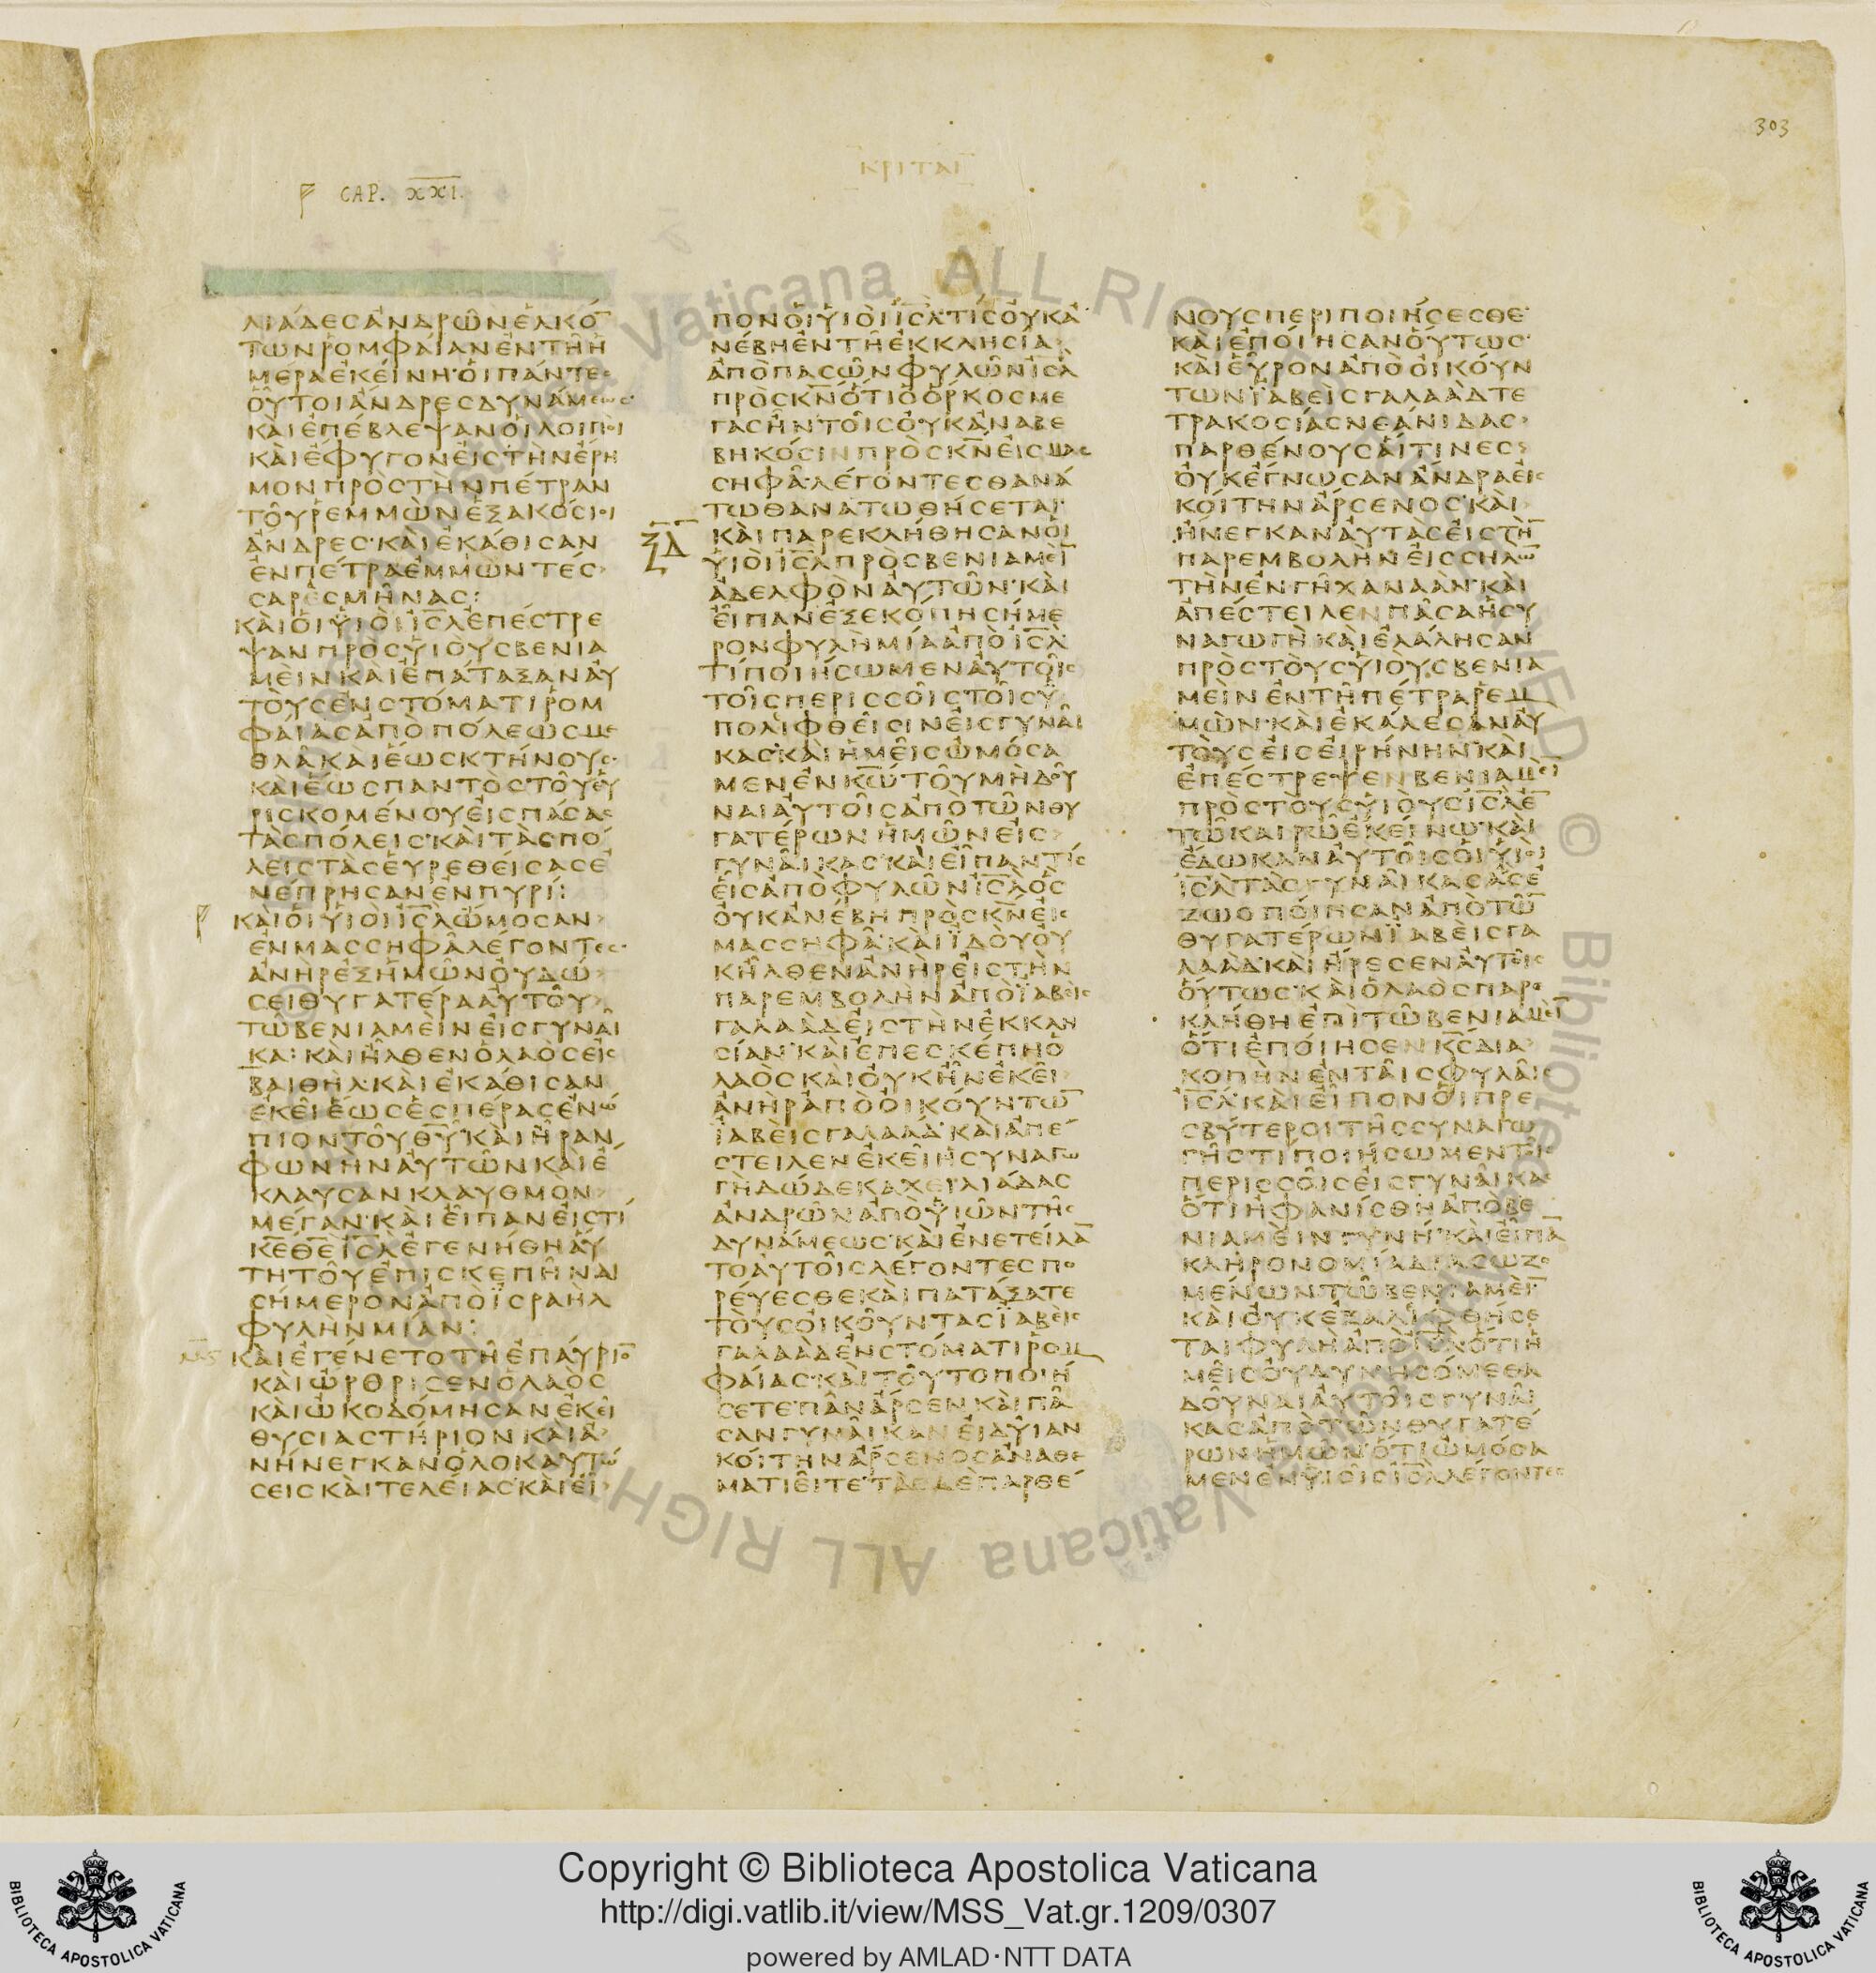 303
ΚΡΙΤΑΙ
CAP. XXI.
ΛΙΑΔΕΣ ΑΝΔΡΩΝ ΕΛΚΟ̅
ΤΩΝ ΡΟΜΦΑΙΑΝ ΕΝ ΤΗ Η
ΜΕΡΑ ΕΚΕΙΝΗ· ΟΙ ΠΑΝΤΕΣ
ΟΥΤΟΙ ΑΝΔΡΕΣ ΔΥΝΑΜΕΩΣ·
ΚΑΙ ΕΠΕΒΛΕΨΑΝ ΟΙ ΛΟΙΠΟΙ
ΚΑΙ ΕΦΥΓΟΝ ΕΙΣ ΤΗΝ ΕΡΗ
ΜΟΝ ΠΡΟΣ ΤΗΝ ΠΕΤΡΑΝ
ΤΟΥ ΡΕΜΜΩΝ ΕΞΑΚΟΣΙΟΙ
ΑΝΔΡΕΣ· ΚΑΙ ΕΚΑΘΙΣΑΝ
ΕΝ ΠΕΤΡΑ ΕΜΜΩΝ ΤΕΣ
ΣΑΡΕΣ ΜΗΝΑΣ:
ΚΑΙ ΟΙ ΥΙΟΙ ΙΣ̅Λ̅ ΕΠΕΣΤΡΕ
ΨΑΝ ΠΡΟΣ ΥΙΟΥΣ ΒΕΝΙΑ
ΜΕΙΝ ΚΑΙ ΕΠΑΤΑΞΑΝ ΑΥ
ΤΟΥΣ ΕΝ ΣΤΟΜΑΤΙ ΡΟΜ
ΦΑΙΑΣ ΑΠΟ ΠΟΛΕΩΣ ΜΕ
ΘΛΑ ΚΑΙ ΕΩΣ ΚΤΗΝΟΥΣ·
ΚΑΙ ΕΩΣ ΠΑΝΤΟΣ ΤΟΥ ΕΥ
ΡΙΣΚΟΜΕΝΟΥ ΕΙΣ ΠΑΣΑΣ
ΤΑΣ ΠΟΛΕΙΣ· ΚΑΙ ΤΑΣ ΠΟ
ΛΕΙΣ ΤΑΣ ΕΥΡΕΘΕΙΣΑΣ Ε
ΝΕΠΡΗΣΑΝ ΕΝ ΠΥΡΙ:
ΚΑΙ ΟΙ ΥΙΟΙ ΙΣ̅Λ̅ ΩΜΟΣΑΝ
ΕΝ ΜΑΣΣΗΦΑ ΛΕΓΟΝΤΕΣ·
ΑΝΗΡ ΕΞ ΗΜΩΝ ΟΥ ΔΩ
ΣΕΙ ΘΥΓΑΤΕΡΑ ΑΥΤΟΥ
ΤΩ ΒΕΝΙΑΜΕΙΝ ΕΙΣ ΓΥΝΑΙ
ΚΑ: ΚΑΙ ΗΛΘΕΝ Ο ΛΑΟΣ ΕΙΣ
ΒΑΙΘΗΛ· ΚΑΙ ΕΚΑΘΙΣΑΝ
ΕΚΕΙ ΕΩΣ ΕΣΠΕΡΑΣ ΕΝΩ
ΠΙΟΝ ΤΟΥ Θ̅Υ̅· ΚΑΙ ΗΡΑΝ
ΦΩΝΗΝ ΑΥΤΩΝ ΚΑΙ Ε
ΚΛΑΥΣΑΝ ΚΛΑΥΘΜΟΝ
ΜΕΓΑΝ· ΚΑΙ ΕΙΠΑΝ ΕΙΣ ΤΙ
Κ̅Ε̅ Θ̅Ε̅ ΙΣ̅Λ̅ ΕΓΕΝΗΘΗ ΑΥ
ΤΗ ΤΟΥ ΕΠΙΣΚΕΠΗΝΑΙ
ΣΗΜΕΡΟΝ ΑΠΟ ΙΣΡΑΗΛ
ΦΥΛΗΝ ΜΙΑΝ:
ΚΑΙ ΕΓΕΝΕΤΟ ΤΗ ΕΠΑΥΡΙΟ̅
ΚΑΙ ΩΡΘΡΙΣΕΝ Ο ΛΑΟΣ
ΚΑΙ ΩΚΟΔΟΜΗΣΑΝ ΕΚΕΙ
ΘΥΣΙΑΣΤΗΡΙΟΝ ΚΑΙ Α
ΝΗΝΕΓΚΑΝ ΟΛΟΚΑΥΤΩ
ΣΕΙΣ ΚΑΙ ΤΕΛΕΙΑΣ· ΚΑΙ ΕΙ
ΠΟΝ ΟΙ ΥΙΟΙ ΙΣ̅Λ̅· ΤΙΣ ΟΥΚ Α
ΝΕΒΗ ΕΝ ΤΗ ΕΚΚΛΗΣΙΑ
ΑΠΟ ΠΑΣΩΝ ΦΥΛΩΝ ΙΣ̅Λ̅
ΠΡΟΣ Κ̅Ν̅ ΟΤΙ Ο ΟΡΚΟΣ ΜΕ
ΓΑΣ ΗΝ ΤΟΙΣ ΟΥΚ ΑΝΑΒΕ
ΒΗΚΟΣΙΝ ΠΡΟΣ Κ̅Ν̅ ΕΙΣ ΜΑΣ
ΣΗΦΑ· ΛΕΓΟΝΤΕΣ ΘΑΝΑ
ΤΩ ΘΑΝΑΤΩΘΗΣΕΤΑΙ·
ΞΔ ΚΑΙ ΠΑΡΕΚΛΗΘΗΣΑΝ ΟΙ
ΥΙΟΙ ΙΣ̅Λ̅ ΠΡΟΣ ΒΕΝΙΑΜΕΙ̅
ΑΔΕΛΦΟΝ ΑΥΤΩΝ· ΚΑΙ
ΕΙΠΑΝ ΕΞΕΚΟΠΗ ΣΗΜΕ
ΡΟΝ ΦΥΛΗ ΜΙΑ ΑΠΟ ΙΣ̅Λ̅·
ΤΙ ΠΟΙΗΣΩΜΕΝ ΑΥΤΟΙΣ
ΤΟΙΣ ΠΕΡΙΣΣΟΙΣ ΤΟΙΣ Υ
ΠΟΛΙΦΘΕΙΣΙΝ ΕΙΣ ΓΥΝΑΙ
ΚΑΣ· ΚΑΙ ΗΜΕΙΣ ΩΜΟΣΑ
ΜΕΝ ΕΝ Κ̅Ω̅ ΤΟΥ ΜΗ ΔΟΥ
ΝΑΙ ΑΥΤΟΙΣ ΑΠΟ ΤΩΝ ΘΥ
ΓΑΤΕΡΩΝ ΗΜΩΝ ΕΙΣ
ΓΥΝΑΙΚΑΣ· ΚΑΙ ΕΙΠΑΝ ΤΙΣ
ΕΙΣ ΑΠΟ ΦΥΛΩΝ ΙΣ̅Λ̅ ΟΣ
ΟΥΚ ΑΝΕΒΗ ΠΡΟΣ Κ̅Ν̅ ΕΙΣ
ΜΑΣΣΗΦΑ· ΚΑΙ ΙΔΟΥ ΟΥ
Κ ΗΛΘΕΝ ΑΝΗΡ ΕΙΣ ΤΗΝ
ΠΑΡΕΜΒΟΛΗΝ ΑΠΟ ΙΑΒΕΙΣ
ΓΑΛΑΑΔ ΕΙΣ ΤΗΝ ΕΚΚΛΗ
ΣΙΑΝ· ΚΑΙ ΕΠΕΣΚΕΠΗ Ο
ΛΑΟΣ ΚΑΙ ΟΥΚ ΗΝ ΕΚΕΙ
ΑΝΗΡ ΑΠΟ ΟΙΚΟΥΝΤΩ̅
ΙΑΒΕΙΣ ΓΑΛΑΑΔ· ΚΑΙ ΑΠΕ
ΣΤΕΙΛΕΝ ΕΚΕΙ Η ΣΥΝΑΓΩ
ΓΗ ΔΩΔΕΚΑ ΧΕΙΛΙΑΔΑΣ
ΑΝΔΡΩΝ ΑΠΟ ΥΙΩΝ ΤΗΣ
ΔΥΝΑΜΕΩΣ· ΚΑΙ ΕΝΕΤΕΙΛΑ̅
ΤΟ ΑΥΤΟΙΣ ΛΕΓΟΝΤΕΣ ΠΟ
ΡΕΥΕΣΘΕ ΚΑΙ ΠΑΤΑΞΑΤΕ
ΤΟΥΣ ΟΙΚΟΥΝΤΑΣ ΙΑΒΕΙΣ
ΓΑΛΑΑΔ ΕΝ ΣΤΟΜΑΤΙ ΡΟΜ
ΦΑΙΑΣ· ΚΑΙ ΤΟΥΤΟ ΠΟΙΗ
ΣΕΤΕ· ΠΑΝ ΑΡΣΕΝ ΚΑΙ ΠΑ
ΣΑΝ ΓΥΝΑΙΚΑΝ ΕΙΔΥΙΑΝ
ΚΟΙΤΗΝ ΑΡΣΕΝΟΣ ΑΝΑΘΕ
ΜΑΤΙΕΙΤΕ· ΤΑΣ ΔΕ ΠΑΡΘΕ
ΝΟΥΣ ΠΕΡΙΠΟΙΗΣΕΣΘΕ·
ΚΑΙ ΕΠΟΙΗΣΑΝ ΟΥΤΩΣ·
ΚΑΙ ΕΥΡΟΝ ΑΠΟ ΟΙΚΟΥΝ
ΤΩΝ ΙΑΒΕΙΣ ΓΑΛΑΑΔ ΤΕ
ΤΡΑΚΟΣΙΑΣ ΝΕΑΝΙΔΑΣ
ΠΑΡΘΕΝΟΥΣ ΑΙΤΙΝΕΣ
ΟΥΚ ΕΓΝΩΣΑΝ ΑΝΔΡΑ ΕΙΣ
ΚΟΙΤΗΝ ΑΡΣΕΝΟΣ· ΚΑΙ
ΗΝΕΓΚΑΝ ΑΥΤΑΣ ΕΙΣ ΤΗ̅
ΠΑΡΕΜΒΟΛΗΝ ΕΙΣ ΣΗΛΩ̅
ΤΗΝ ΕΝ ΓΗ ΧΑΝΑΑΝ· ΚΑΙ
ΑΠΕΣΤΕΙΛΕΝ ΠΑΣΑ Η ΣΥ
ΝΑΓΩΓΗ ΚΑΙ ΕΛΑΛΗΣΑΝ
ΠΡΟΣ ΤΟΥΣ ΥΙΟΥΣ ΒΕΝΙΑ
ΜΕΙΝ ΕΝ ΤΗ ΠΕΤΡΑ ΡΕΜ
ΜΩΝ· ΚΑΙ ΕΚΑΛΕΣΑΝ ΑΥ
ΤΟΥΣ ΕΙΣ ΕΙΡΗΝΗΝ· ΚΑΙ
ΕΠΕΣΤΡΕΨΕΝ ΒΕΝΙΑΜΕΙ̅
ΠΡΟΣ ΤΟΥΣ ΥΙΟΥΣ ΙΣ̅Λ̅ Ε̅
ΤΩ ΚΑΙΡΩ ΕΚΕΙΝΩ· ΚΑΙ
ΕΔΩΚΑΝ ΑΥΤΟΙΣ ΟΙ ΥΙΟΙ
ΙΣ̅Λ̅ ΤΑΣ ΓΥΝΑΙΚΑΣ ΑΣ Ε
ΖΩΟΠΟΙΗΣΑΝ ΑΠΟ ΤΩ̅
ΘΥΓΑΤΕΡΩΝ ΙΑΒΕΙΣ ΓΑ
ΛΑΑΔ· ΚΑΙ ΗΡΕΣΕΝ ΑΥΤΟΙΣ
ΟΥΤΩΣ· ΚΑΙ Ο ΛΑΟΣ ΠΑΡΕ
ΚΛΗΘΗ ΕΠΙ ΤΩ ΒΕΝΙΑΜΕΙ̅
ΟΤΙ ΕΠΟΙΗΣΕΝ Κ̅Σ̅ ΔΙΑ
ΚΟΠΗΝ ΕΝ ΤΑΙΣ ΦΥΛΑΙΣ
ΙΣ̅Λ̅· ΚΑΙ ΕΙΠΟΝ ΟΙ ΠΡΕ
ΣΒΥΤΕΡΟΙ ΤΗΣ ΣΥΝΑΓΩ
ΓΗΣ ΤΙ ΠΟΙΗΣΩΜΕΝ ΤΟΙΣ
ΠΕΡΙΣΣΟΙΣ ΕΙΣ ΓΥΝΑΙΚΑ
ΟΤΙ ΗΦΑΝΙΣΘΗ ΑΠΟ ΒΕ
ΝΙΑΜΕΙΝ ΓΥΝΗ· ΚΑΙ ΕΙΠΑ̅
ΚΛΗΡΟΝΟΜΙΑ ΔΙΑΣΩΖΟ
ΜΕΝΩΝ ΤΩ ΒΕΝΙΑΜΕΙ̅
ΚΑΙ ΟΥΚ ΕΞΑΛΙΦΘΗΣΕ
ΤΑΙ ΦΥΛΗ ΑΠΟ ΙΣ̅Λ̅ ΟΤΙ Η
ΜΕΙΣ ΟΥ ΔΥΝΗΣΟΜΕΘΑ
ΔΟΥΝΑΙ ΑΥΤΟΙΣ ΓΥΝΑΙ
ΚΑΣ ΑΠΟ ΤΩΝ ΘΥΓΑΤΕ
ΡΩΝ ΗΜΩΝ· ΟΤΙ ΩΜΟΣΑ
ΜΕΝ ΕΝ ΥΙΟΙΣ ΙΣ̅Λ̅ ΛΕΓΟΝΤΕΣ
Copyright © Biblioteca Apostolica Vaticana
http://digi.vatlib.it/view/MSS_Vat.gr.1209/0307
powered by AMLAD·NTT DATA
BIBLIOTECA APOSTOLICA VATICANA
BIBLIOTECA APOSTOLICA VATICANA